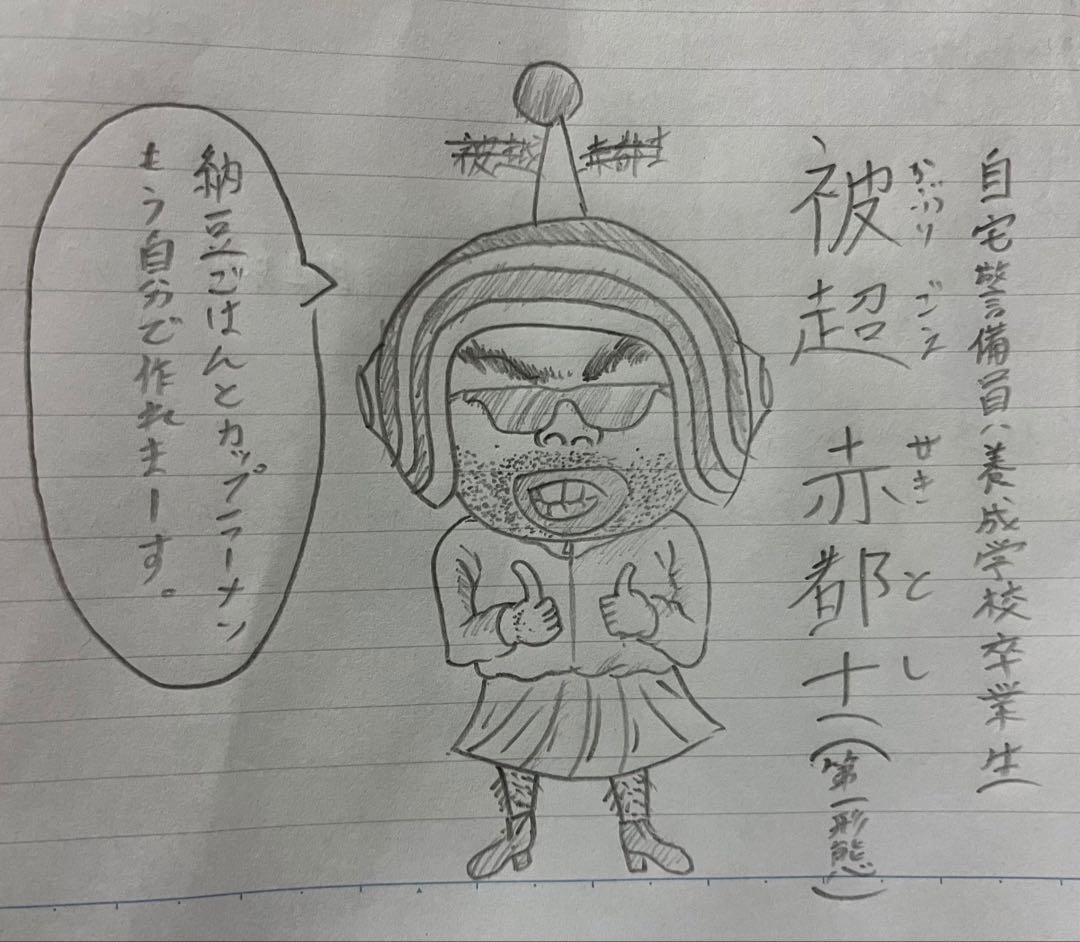 自宅警備員養成学校卒業生
被超 赤都士(第一形態)
かぶりごえ せきとし
納豆ごはんとカップラーメン
もう自分で作れまーす。